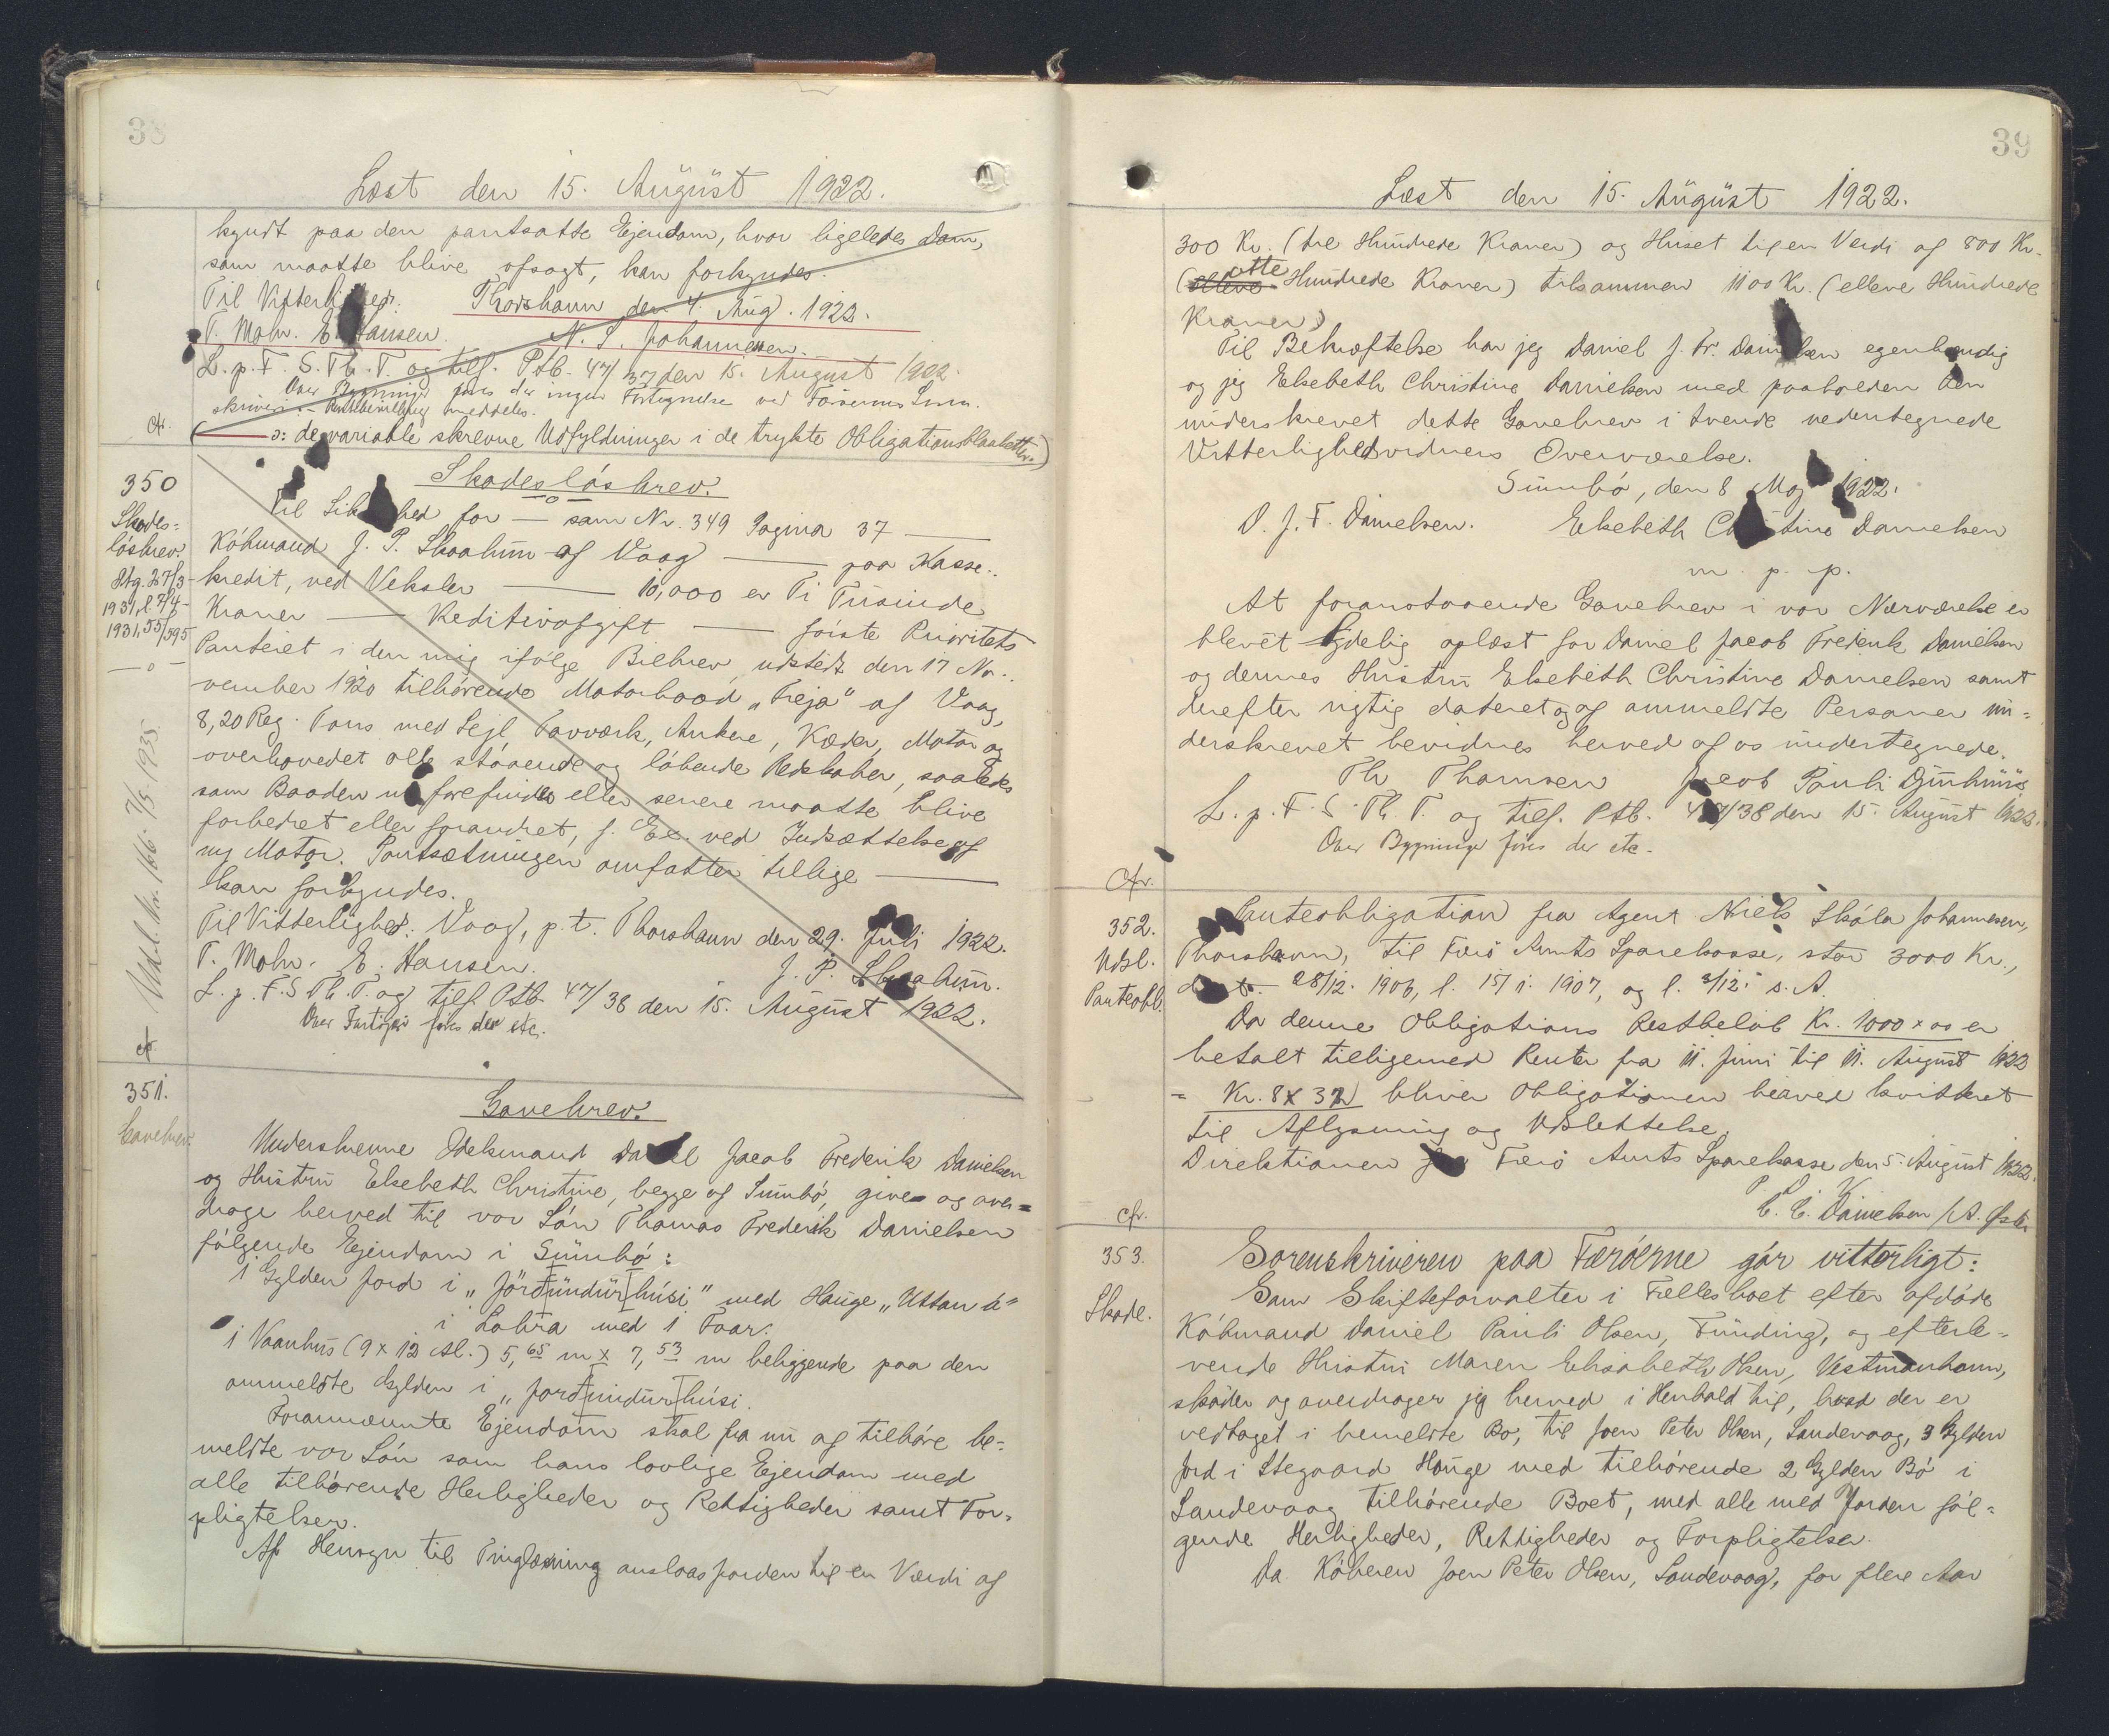 38
Læst den 15. August 1922.
kyndt paa den pantsatte Ejendom, hvor ligeledes Dom,
som maatte blive afsagt, kan forkyndes.
Til Vitterlighed: Thorshavn den 4. Aug. 1922.
T. Mohr. E. Hansen. N. S. Johannesen.
L. p. F. S. Th. T. og tilf. Ptb. 47/37 den 15. August 1922.
Over Bygninger føres der ingen Fortegnelse ved Færøernes Soren-
skriveri. - meddeles.
cfr.
ɔ: de variable skrevne Udfyldninger i de trykte Obligationsblanketter.)
350
Skades=
løsbrev.
Atg. 27/3-
1931, l. 7/4-
1931, 55/595
Udsl. Nr. 166. 7/5. 1935.
Skadesløsbrev.
Til Sikkerhed for — som Nr. 349 Pagina 37 —
Købmand J. P. Skaalum af Vaag — paa Kasse-
kredit, ved Veksler — 10,000 er Ti Tusinde
Kroner — Reditivafgift — første Prioritets
Panteret i den mig ifølge Bilbrev udstedt den 17 No-
vember 1920 tilhørende Motorbaad „Freja" af Vaag,
8,20 Reg. Tons med Sejl Tovværk, Ankere, Kæder, Motor og
overhovedet alle staaende og løbende Redskaber, saaledes
som Baaden nu forefindes eller senere maatte blive
forbedret eller forandret, f. Ex. ved Indsættelse af
ny Motor. Pantsætningen omfatter tillige —
kan forkyndes.
Til Vitterlighed: Vaag, p. t. Thorshavn den 29. Juli 1922.
T. Mohr. E. Hansen. J. P. Skaalum.
L. p. F. S. Th. T. og tilf. Ptb. 47/38 den 15. August 1922.
Over Fartøjer føres der etc.
cfr.
351.
Gavebrev.
Gavebrev.
Underskrevne Odelsmand Daniel Jacob Frederik Danielsen
og Hustru Elsebeth Christine, begge af Sumbø, give og over=
drage herved til vor Søn Thomas Frederik Danielsen
følgende Ejendom i Sumbø:
1 Gylden Jord i „Jørðundurhúsi" med Hauge „Uttan á"
i Lobra med 1 Faar.
1 Vaanhus (9 x 12 Al.) 5,65 m x 7,53 m beliggende paa den
ommeldte Gylden i „Jørðundurhúsi.
Forannævnte Ejendom skal fra nu af tilhøre be-
meldte vor Søn som hans lovlige Ejendom med
alle tilhørende Herligheder og Rettigheder samt For-
pligtelser.
Af Hensyn til Tinglæsning anslaas Jorden til en Værdi af
39
Læst den 15. August 1922.
300 Kr. (tre Hundrede Kroner) og Huset til en Værdi af 800 Kr.
(otte Hundrede Kroner) tilsammen 1100 Kr. (elleve Hundrede
Kroner)
Til Bekræftelse har jeg Daniel J. Fr. Danielsen egenhændig
og jeg Elsebeth Christine Danielsen med paaholden Pen
underskrevet dette Gavebrev i tvende vedertegnede
Vitterlighedsvidners Overværelse.
Sumbø, den 8 Maj 1922.
D. J. F. Danielsen. Elsebeth Christine Danielsen
m. p. p.
At foranstaaende Gavebrev i vor Nærværelse er
blevet tydelig oplæst for Daniel Jacob Frederik Danielsen
og dennes Hustru Elsebeth Christine Danielsen samt
derefter rigtig dateret og af ommeldte Personer un=
derskrevet bevidnes herved af os undertegnede.
Th Thomsen Jacob Pauli Djurhuus
L. p. F. S. Th. T. og tilf. Ptb. 47/38 den 15. August 1922.
Over Bygninger føres der etc.
Cfr.
352.
Udsl.
Panteobl.
Panteobligation fra Agent Niels Skála Johannesen,
Thorshavn, til Færø Amts Sparekasse, stor 3000 Kr.,
dat. 28/12. 1906, l. 15/1. 1907, og l. 3/12. s. A.
Da denne Obligations Restbeløb Kr. 1000 x 00 er
betalt tilligemed Renter fra 11. Juni til 11. August 1922
= Kr. 8 x 32 bliver Obligationen herved kvitteret
til Aflysning og Udslettelse.
Direktionen for Færø Amts Sparekasse den 5. August 1922.
C. C. Danielsen /
cfr.
353.
Skøde.
Sorenskriveren paa Færøerne gør vitterligt:
Som Skifteforvalter i Fællesboet efter afdøde
Købmand Daniel Pauli Olsen, Funding, og efterle-
vende Hustru Maren Elisabeth Olsen, Vestmanhavn,
skøder og overdrager jeg herved i Henhold til, hvad der er
vedtaget i bemeldte Bo, til Joen Peter Olsen, Sandevaag, 3 Gylden
Jord i Stegaard Hauge med tilhørende 2 Gylden Bø i
Sandevaag tilhørende Boet, med alle med Jorden føl=
gende Herligheder, Rettigheder og Forpligtelser.
Da Køberen Joen Peter Olsen, Sandevaag, for flere Aar